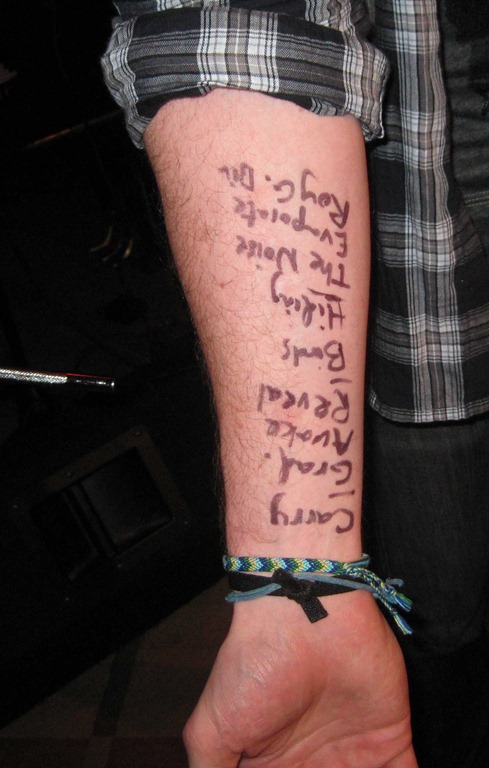 Carry
Grad.
Awake
Reveal
Birds
Hiding
The Noise
Evaporate
Roy G. Biv